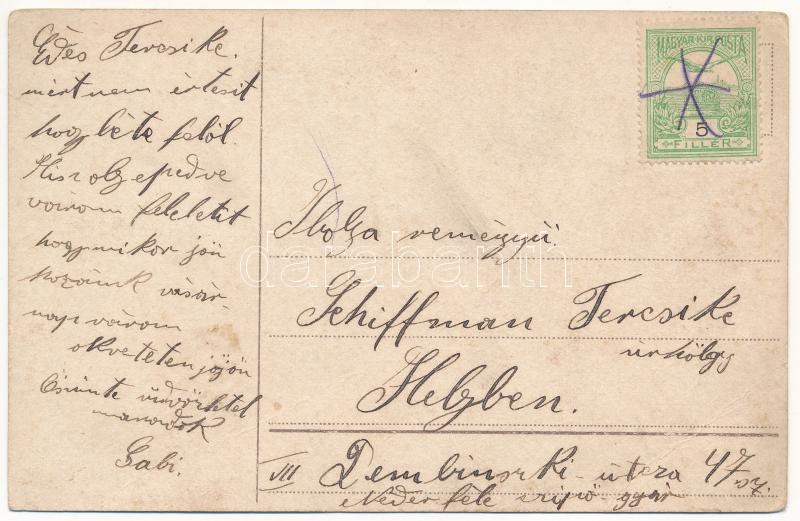 Édes Tercsike.
mért nem értesit
hogyléte felöl.
Hisz oly epedve
várom feleletit
hogy mikor jön
hozánk vasár-
nap várom
okveteten jöjön
Öszinte üdvözletel
maradok
Gabi.
MAGYAR·KIR·POSTA
5
FILLÉR
Ibolya
Schiffman Tercsike
úrhölgy
Helyben.
VII Dembinszki-utcza 47 sz.
féle gyár
darabanth